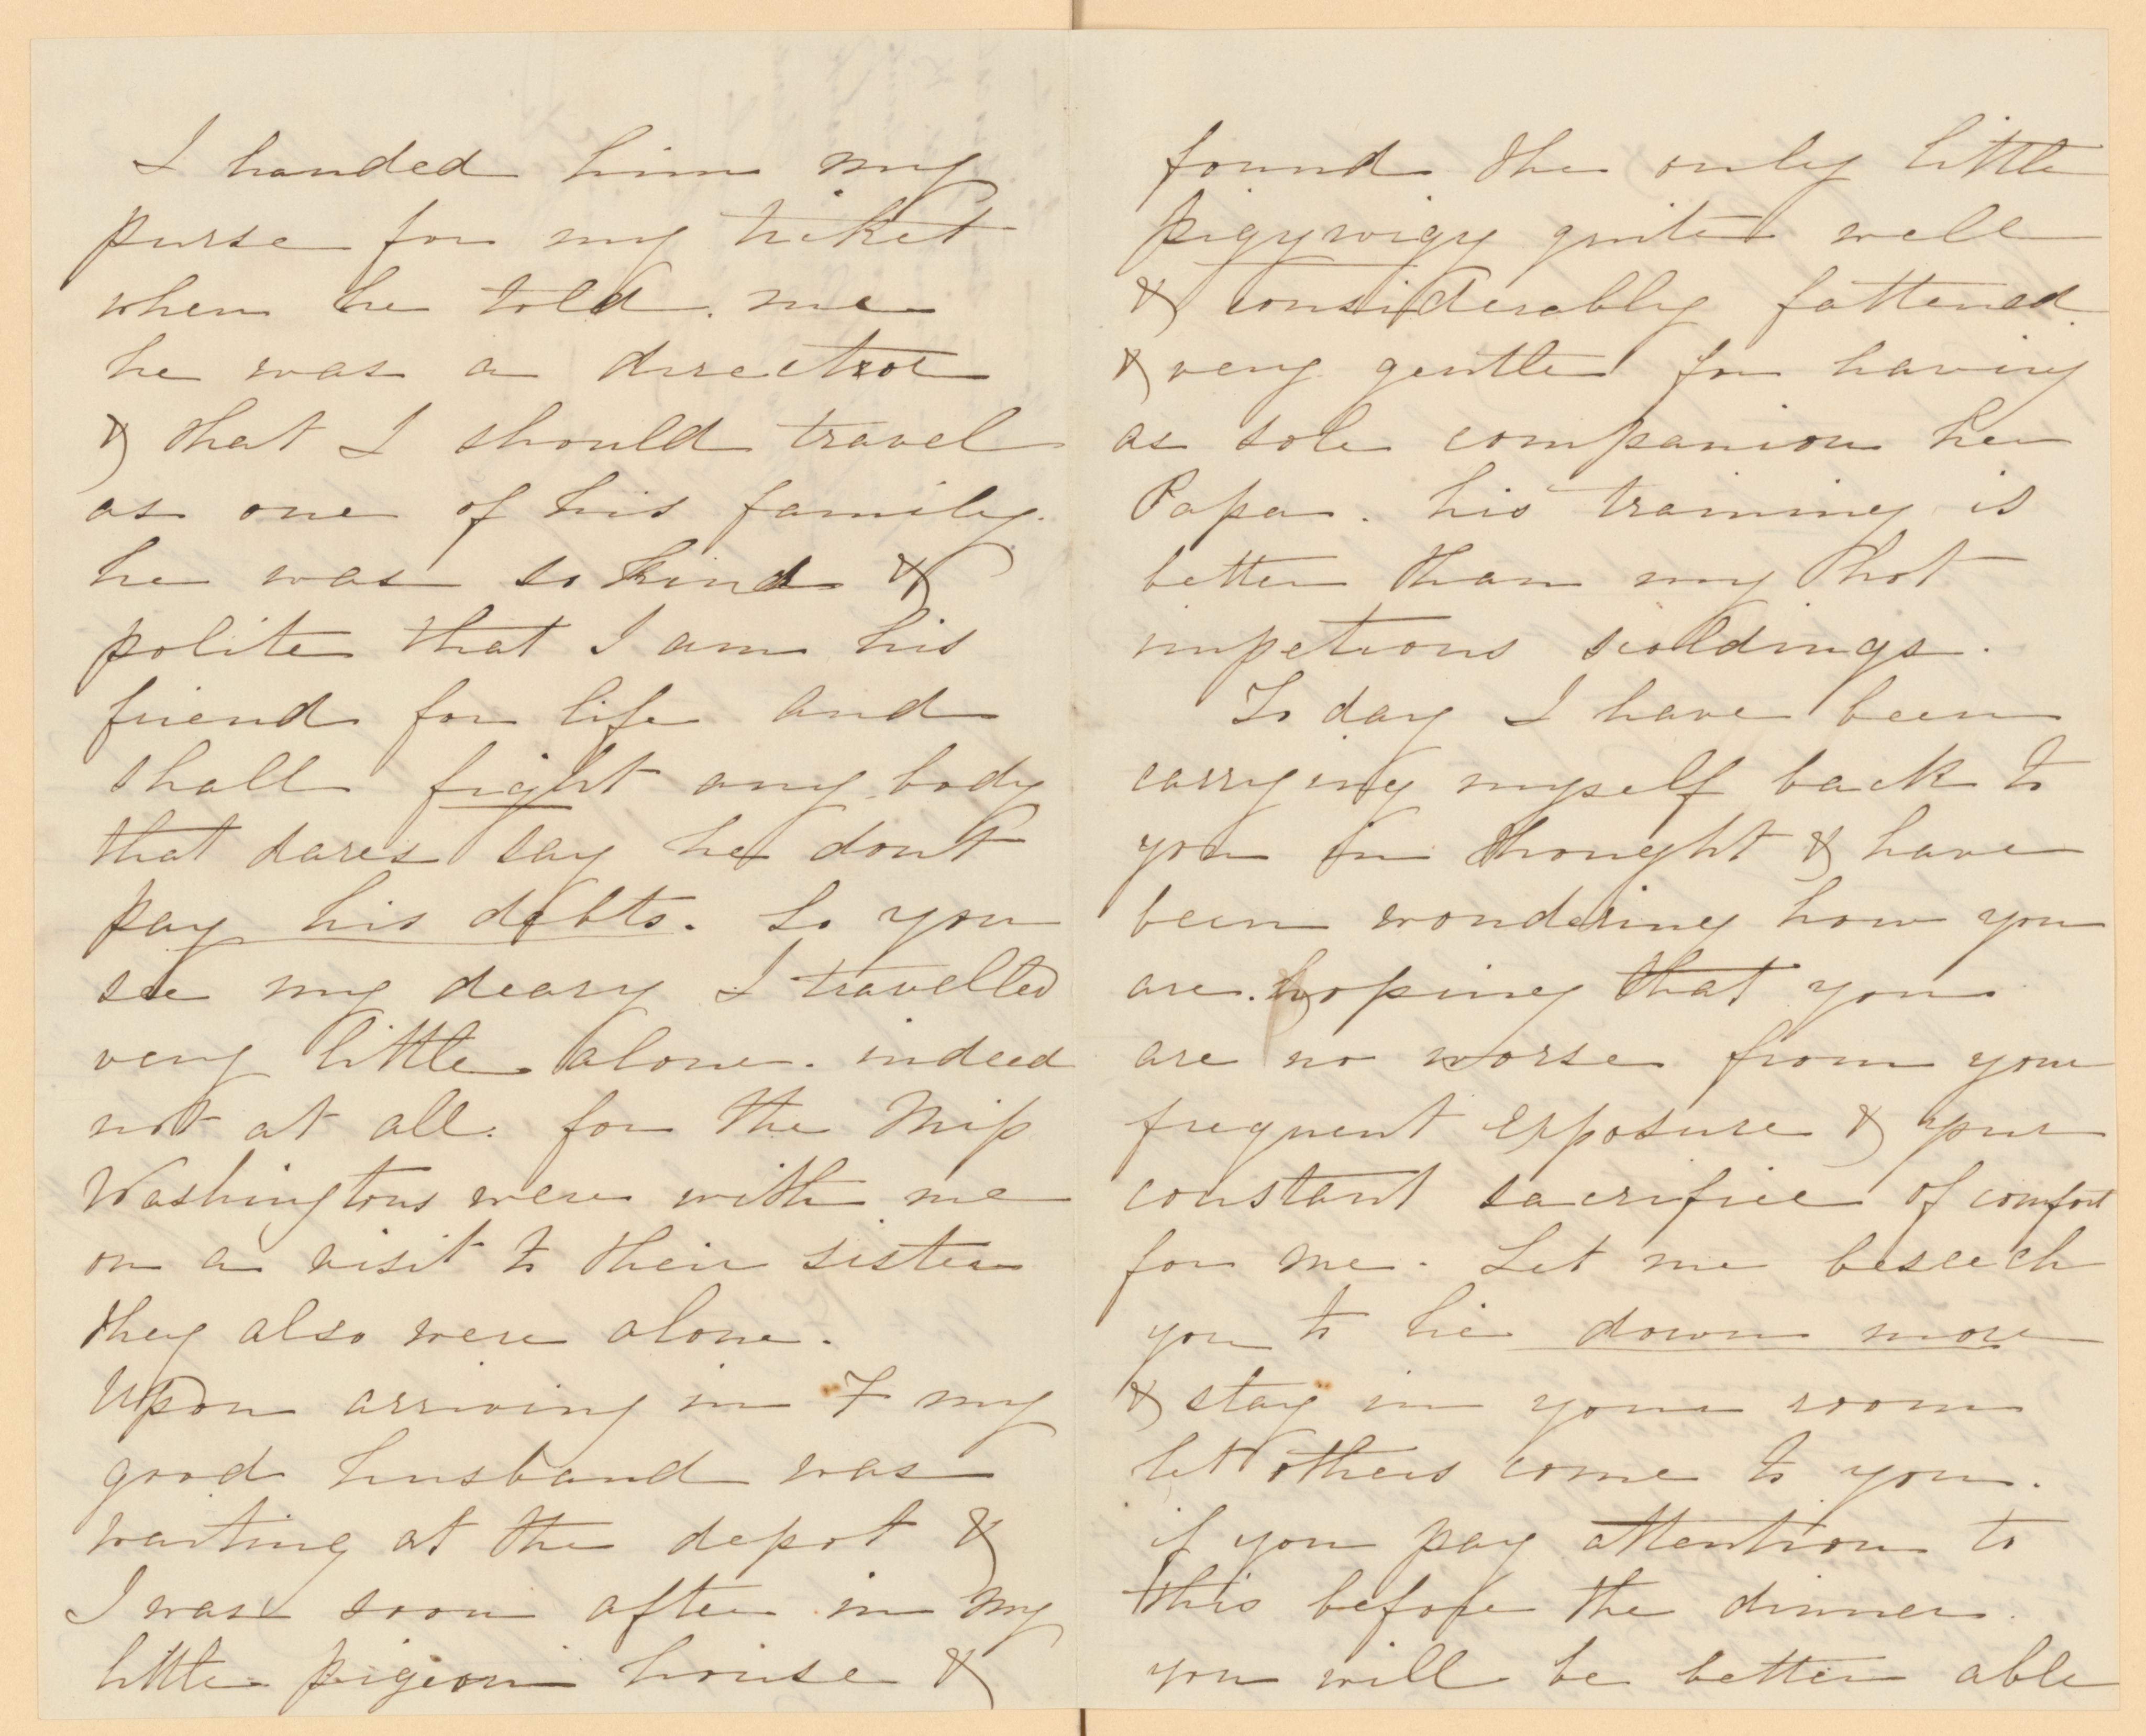 I handed him my
purse for my ticket
when he told me
he was a director
& that I should travel
as one of his family.
he was so kind &
polite that I am his
friend for life and
shall fight any body
that dares say he dont
pay his debts. So you
see my deary I travelled
very little alone. indeed
not at all. for the Miss
Washingtons were with me
on a visit to their sister
they also were alone.
Upon arriving in F my
good husband was
waiting at the depot &
I was soon after in my
little pigeon house &
found the only little
pigywigy quite well
& considerably fattened.
& very gentle for having
as sole companion her
Papa. his training is
better than my hot
impetious scoldings.
To day I have been
carrying myself back to
you in thought & have
been wondering how you
are. hoping that you
are no worse from your
frequent exposure & your
constant sacrifice of comfort
for me. Let me beseech
you to lie down more
& stay in your room
let others come to you.
if you pay attention to
this before the dinner.
you will be better able